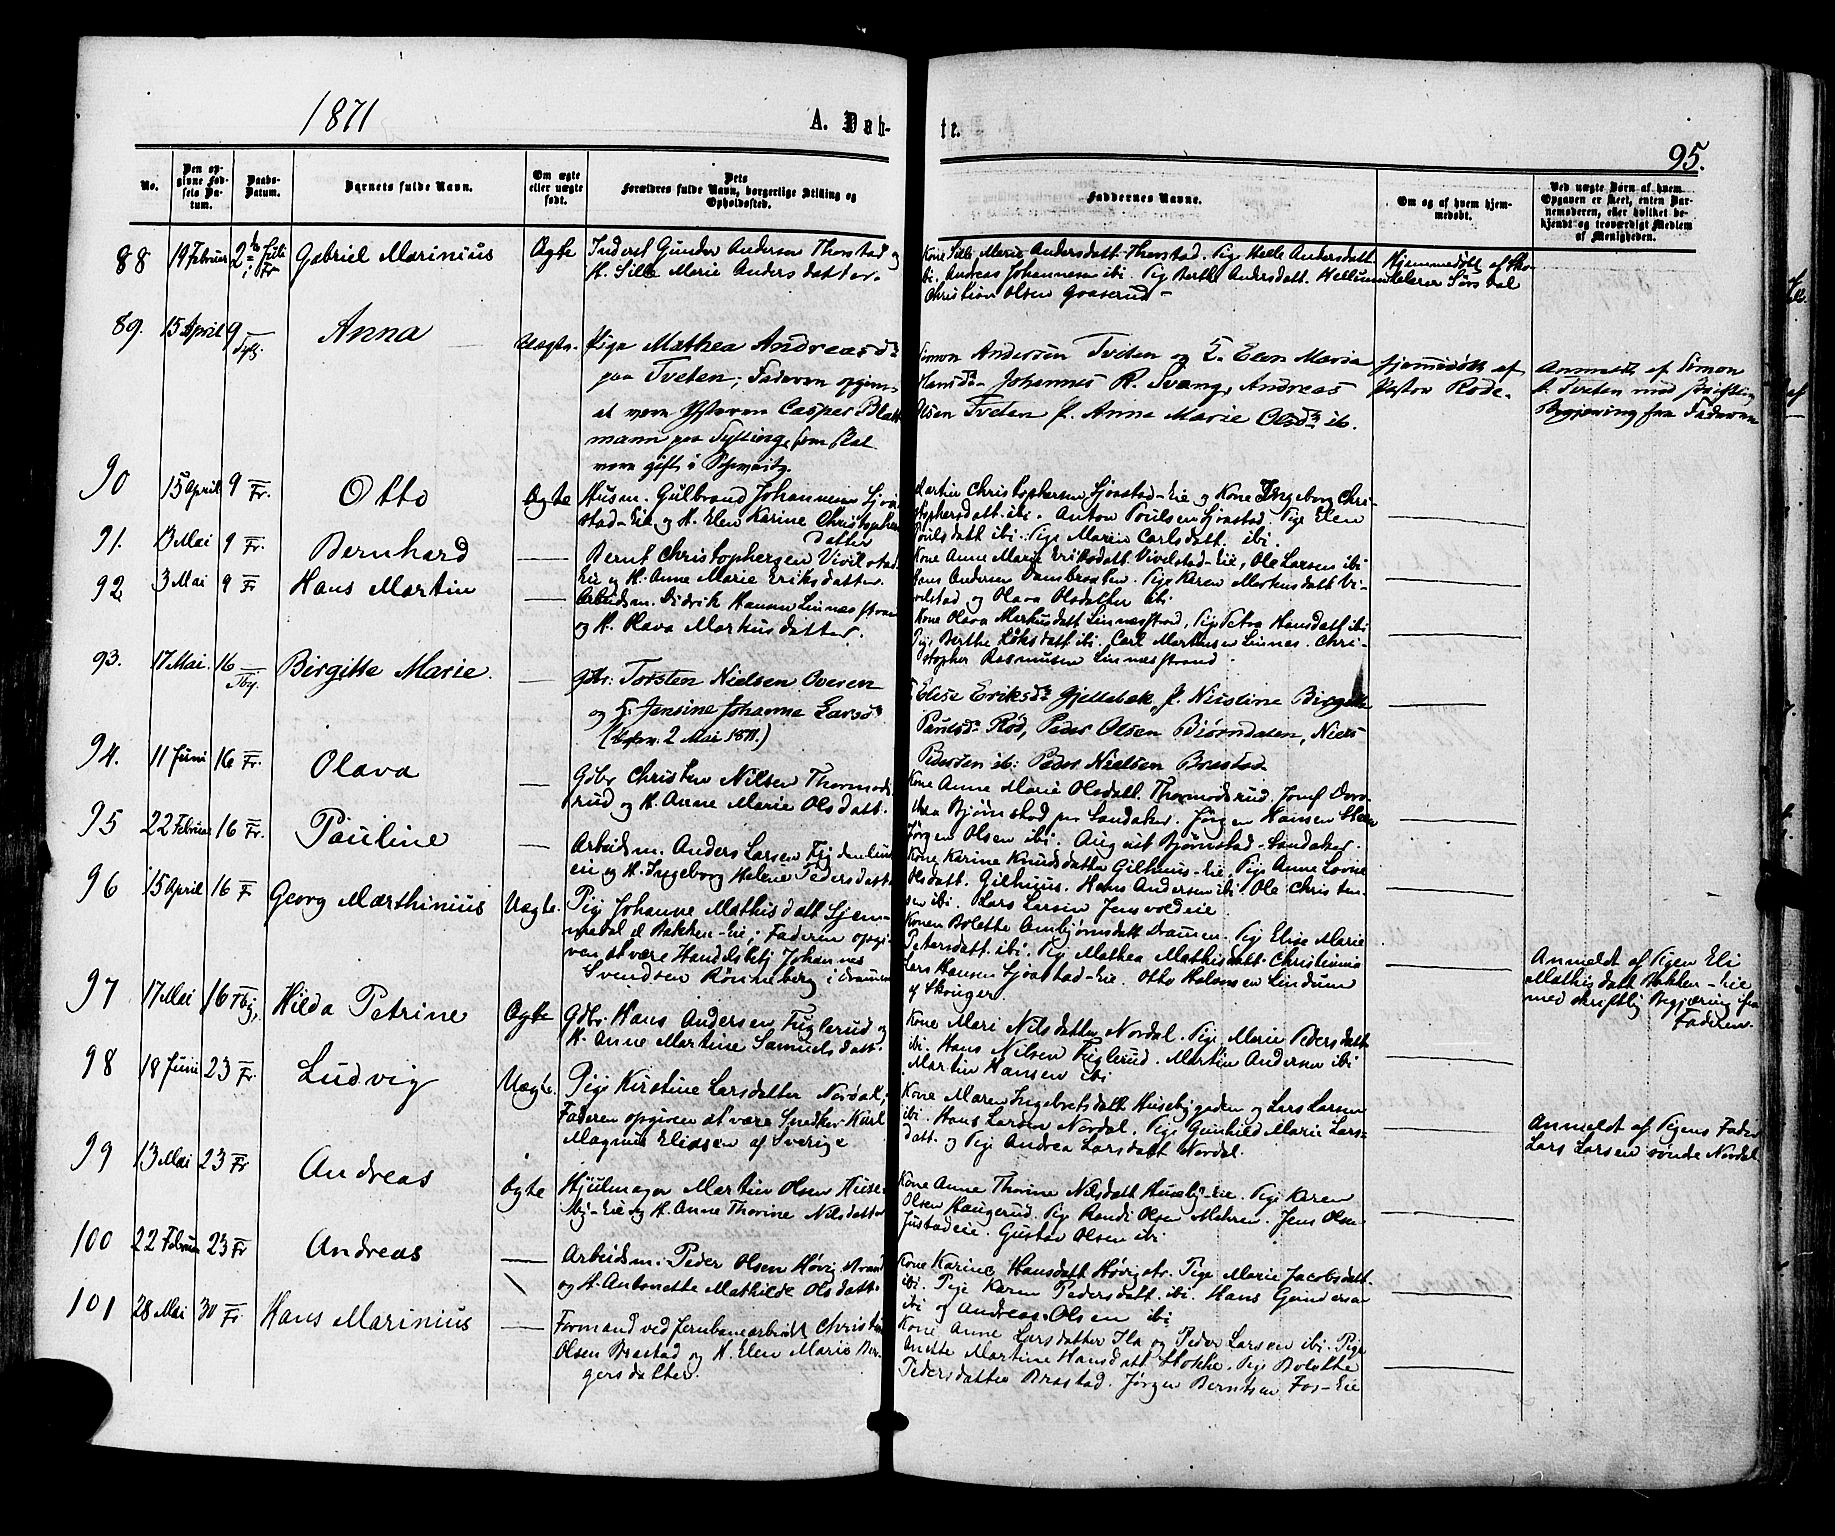 1871
A. Døb-
te.
95.
No.
Den op-
givne Fød-
sels Da-
tum.
Daabs-
Datum.
Barnets fulde Navn.
Om ægte
eller uægte
født.
Dets
Forældres fulde Navn, borgerlige Stilling og
Opholdssted.
Faddernes Navne.
Om og af hvem hjem-
medøbt.
Ved uægte Børn af hvem
Opgaven er skeet, enten Bar-
nemoderen, eller hvilket be-
kjendt og troværdigt Medlem
af Menigheden.
88 19 Februar 2 Juli Fr Gabriel Marinius Ægte Inderst Gunder Andersen Thorstad og
H. Sille Marie Andersdatter.
Kone Sille Marie Andersdatt. Thorstad. Pige Helle Andersdatt
ibi. Andreas Johannesen ibi. Pige Berthe Andersdatt. Hellum
Christian Olsen Goaserud
Hjemmedøbt af
89. 15 April 9 Anna Uægte. Pige Mathea Andreasd.
paa Tveten; Faderen opgivn.
at være Casper Blatt
mann paa Sylling, som skal
være gift i Schweitz.
Simon Andersen Tveten og Elen Maria
Hansd. Johannes R. Svang, Andreas
Olsen Tveten P. Anna Marie Olsd. ib.
hjemmedøbt af
Pastor Rode.
Anmeldt af Simon
A. Tveten med skriftlig
Begjæring fra Faderen
90 15 April 9 Fr. Otto Ægte Husm. Gulbrand Johannesen Sjøa-
stad-Eie og H. Elen Karine Christophers
datter
Martin Christophersen Sjøastad-Eie og Kone Ingeborg Chri-
stophersdatt. ibi. Anton Poulsen Sjøastad. Pige Elen
Poulsdatt ibi. Pige Maren Carlsdatt. ibi.
91. 13 Mai 9 Fr. Bernhard Bernt Christophersen Vivelstad
Eie og H. Anne Marie Eriksdatter.
Kone Anne Marie Eriksdatt. Vivelstad-Eie, Ole Larsen ibi
Hans Andersen Dambraaten. Pige Karen Markusdatt Vi-
velstad og Olava Olsdatter ibi
92 3 Mai 9 Fr Hans Martin Arbeidsm. Didrik Hansen Linnesstrand
og H. Olava Markusdatter.
Kone Olava Markusdatt Linnesstrand, Pige Petra Hansdatt ibi
Pige Berthe ibi, Carl Mathisen Linnes. Chri-
stopher Rasmusen Linnesstrand
93. 17 Mai. 16 Birgitte Marie. Gbr: Torsten Nielsen Overen
og Jensine Johanna Larsd.
2 Mai 1871.)
Elise Eriksd. Gjeltebek, P. Nicoline Birgitte
Paulsd. Rød, Peder Olsen Bjørndalen, Niels
Pedersen ib: Peder Nielsen Brastad
94. 11 Juni 16 Fr. Olava Gdbr Christen Nilsen Thormods-
rud og H. Anne Marie Olsdatt.
Kone Anne Marie Olsdatt. Thormodsrud. Josef
Bjørnstad pr Sandaker. Jørgen Hansen
Jørgen Olsen ibi. August Bjørnstad-Sandaker.
95 22 Februar 16 Fr. Pauline Arbeidsm. Anders Larsen
eie og H. Ingeborg Helene Pedersdatt
Kone Karine Knudsdatter Gilhuus-Eie. Pige Anne Lovise
Olsdatt. Gilhuus. Hans Andersen ibi. Ole Christen
sen ibi. Lars Larsen Jensvoldeie
96 15 April 16 F Georg Marthinius Uægte. Pige Johanne Mathisdatt
Bakken-Eie; Faderen opgi-
ven at være Handelsbetj. Johannes
Svendsen Rønneberg i Drammen
Konen Bolette Ambjørnsdatt Dramen. Pige Elise Marie
Petersdatt. ibi. Pige Mathea Mathisdatt. Christiania
Lars Hansen Sjøastad-Eie. Otto Halvorsen Lindum
af Skouger.
Anmeldt af Pigen Eli
Mathisdatt Bakken-Eie
med skriftlig Begjæring fra
Faderen.
97 17 Mai 16 Hilda Petrine Ægte Gdbr. Hans Andersen Fuglerud og
H. Anne Martine Samuelsdatt.
Kone Mari Nilsdatter Nordal. Pige Marie Pedersdatt
ibi. Hans Nilsen Fuglerud. Martin Andersen ibi
Martin Hansen ibi
98 18 Juni 23 Fr. Ludvig Uægte. Pige Kirstine Larsdatter Nordal,
Faderen opgiven at være Snedker Karl
Magnus Eliasen af Sverige
Kone Maren Ingebretsdatt Husebygaden og Lars Larsen
ibi. Hans Larsen Nordal. Pige Gunhild Marie Lars-
datt. og Pige Andrea Larsdatt Nordal.
Anmeldt af Pigens Fader
Lars Larsen søndre Nordal
99 13 Mai 23 Fr Andreas Ægte Hjulmager Martin Olsen Huse-
by-Eie og H. Anne Thorine Nilsdatter
Kone Anne Thorine Nilsdatt Huseby-Eie. Pige Karen
Olsen Haugerud. Pige Randi Olsen Mehren. Jens Olsen
Justadeie. Gustav Olsen ibi
100 22 Februar 23 Fr Andreas Arbeidsm. Peder Olsen Høvigstrand
og H. Antonette Mathilde Olsdatt.
Kone Karine Hansdatt Høvigstr. Pige Marie Jacobsdatt.
ibi. Pige Karen Pedersdatt. ibi. Hans Gundersen
ibi og Andreas Olsen ibi
101 28 Mai 30 Fr. Hans Marinius Formand ved Jernbanearbeidet Christian
Olsen Brastad og H. Elen Marie Bir-
gersdatter.
Kone Anne Larsdatter Ila og Peder Larsen ibi. Pige
Anette Martine Hansdatt Stokke. Pige Bolette
Pedersdatter Brastad. Jørgen Berntsen Fos-Eie